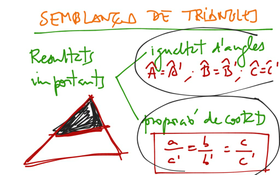 SEMBLANÇA DE TRIANGLES
Resultats
importants
igualtat d'angles
Â = Â', B̂ = B̂', Ĉ = Ĉ'
proporció de costats
a/a' = b/b' = c/c'